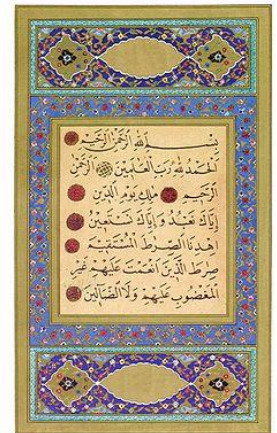 بِسْمِ اللهِ الرَّحْمٰنِ الرَّحِيمِ
اَلْحَمْدُ لِلّٰهِ رَبِّ الْعَالَمِينَ الرَّحْمٰنِ
الرَّحِيمِ مٰلِكِ يَوْمِ الدِّينِ
إِيَّاكَ نَعْبُدُ وَإِيَّاكَ نَسْتَعِينُ
اهْدِنَا الصِّرَاطَ الْمُسْتَقِيمَ
صِرَاطَ الَّذِينَ أَنْعَمْتَ عَلَيْهِمْ غَيْرِ
الْمَغْضُوبِ عَلَيْهِمْ وَلَا الضَّالِّينَ